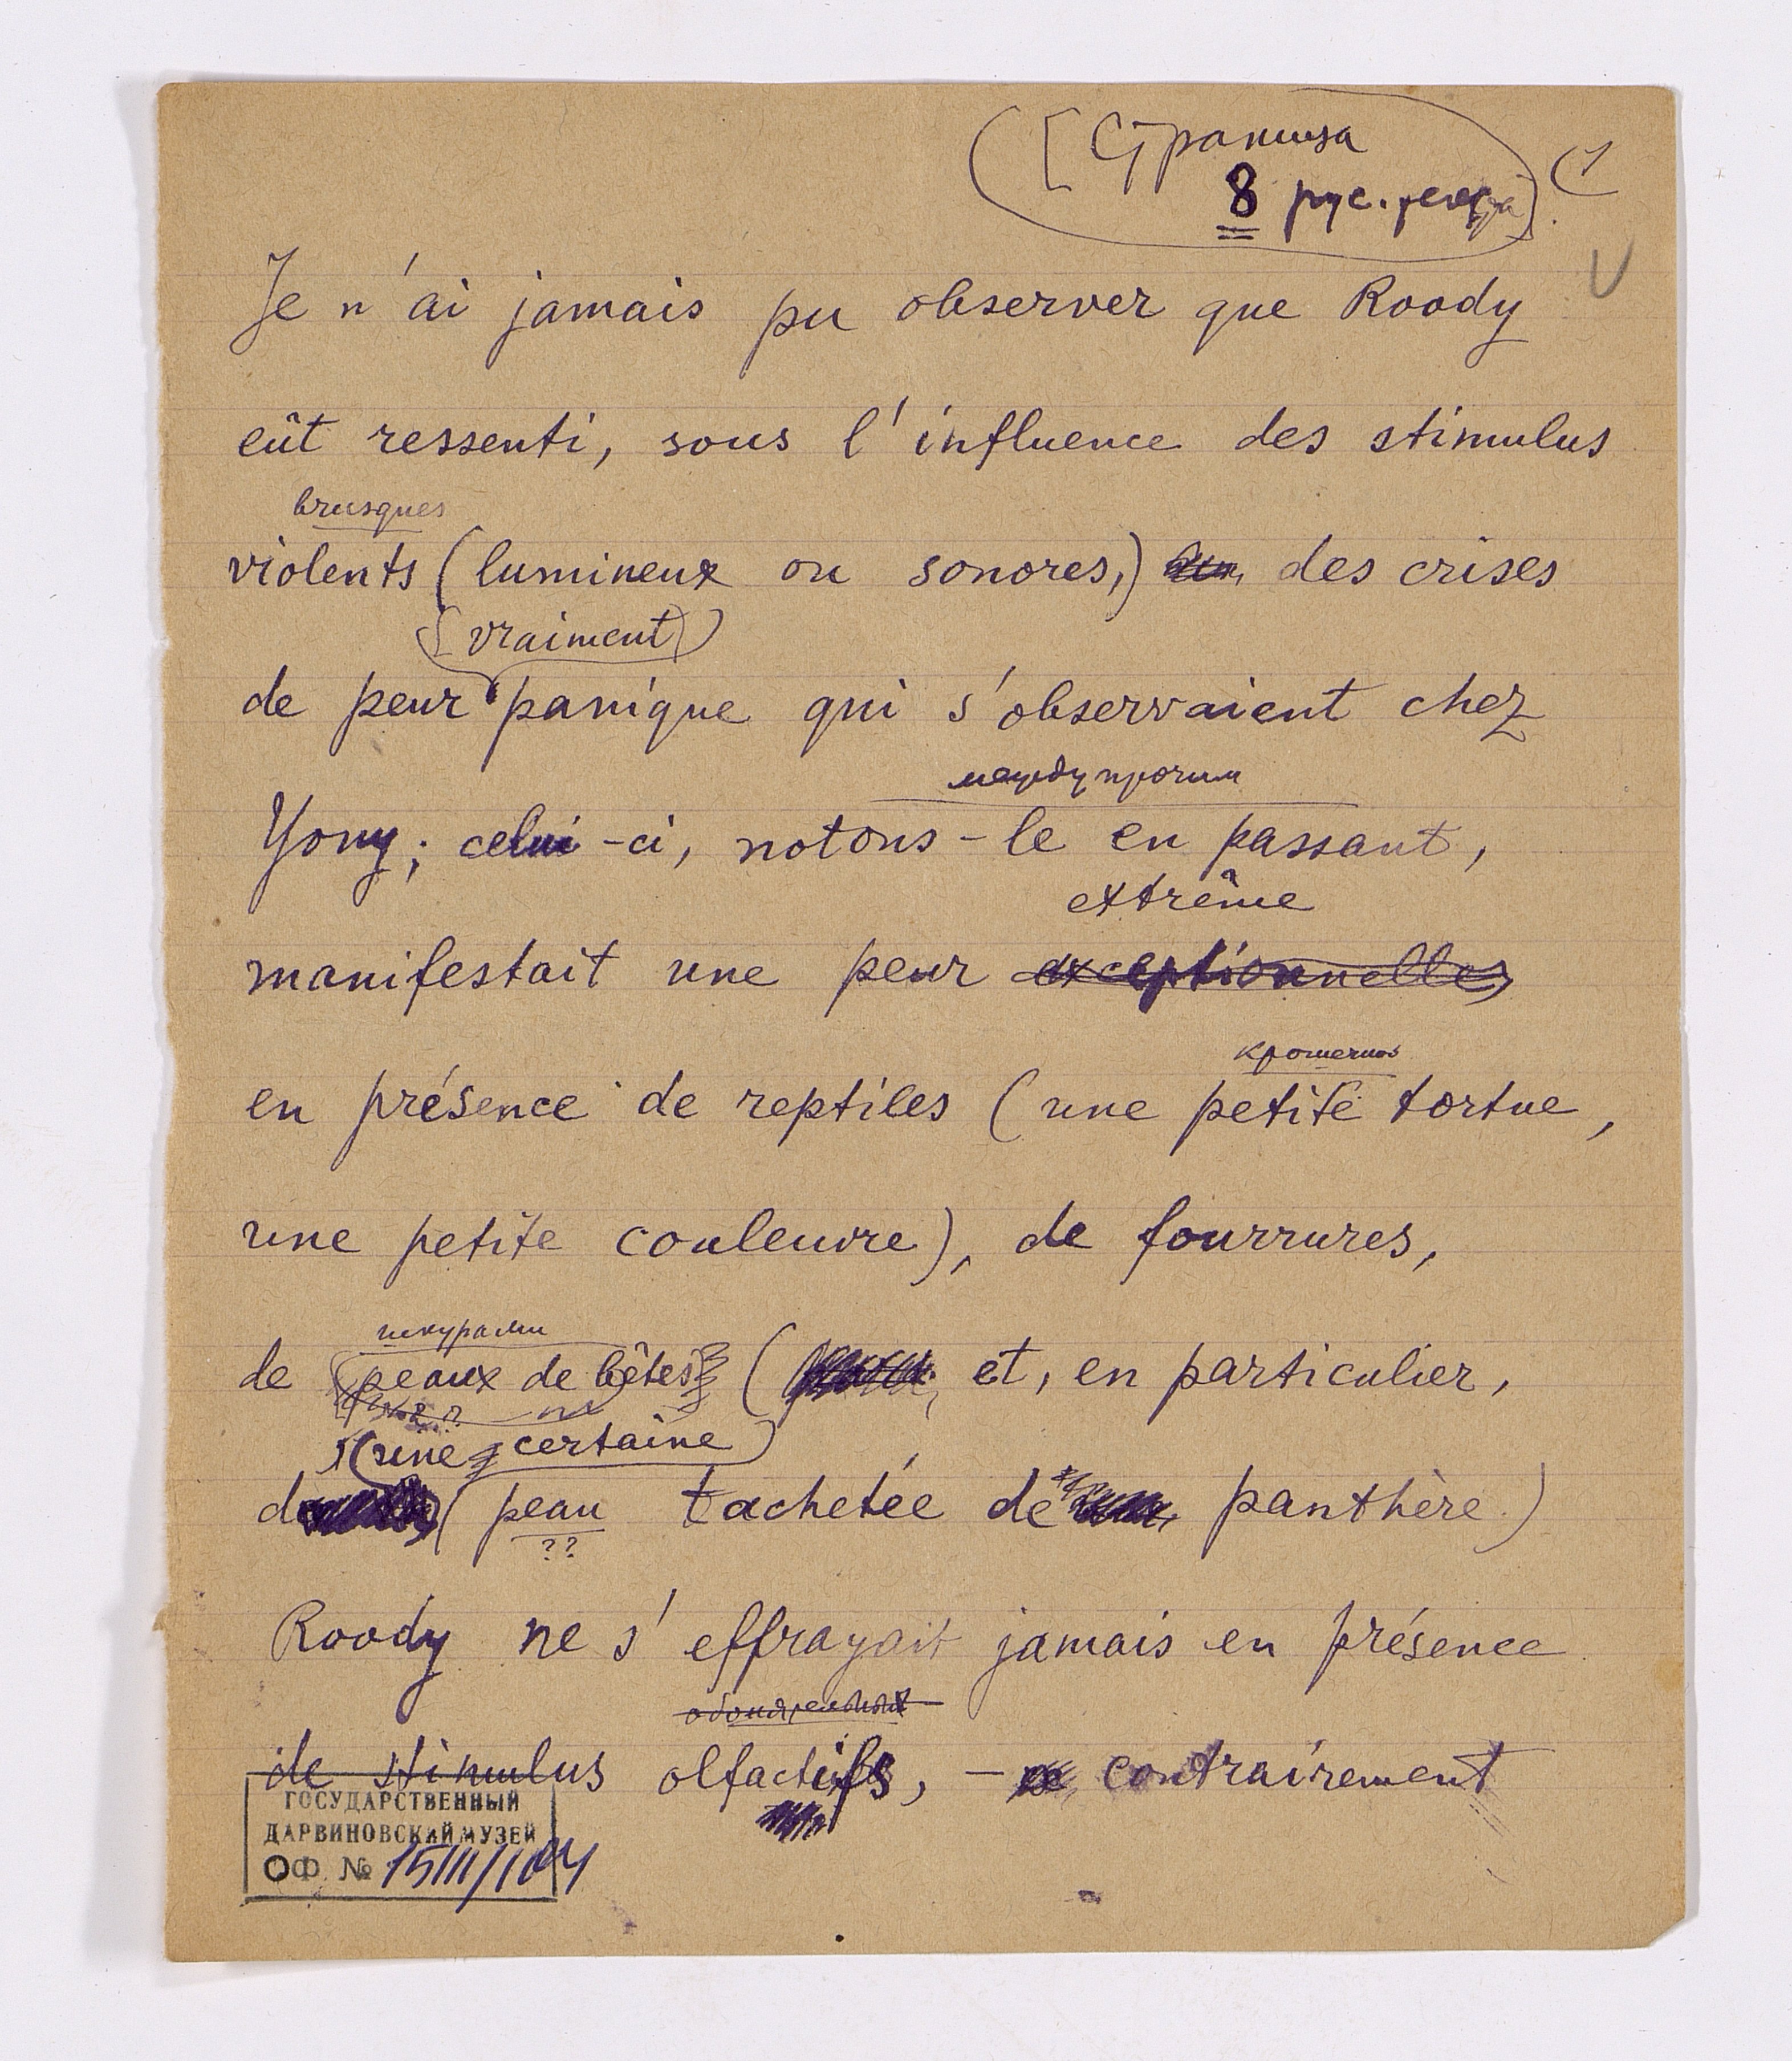 [Страница
8 рус. текста]
Je n'ai jamais pu observer que Roody
eût ressenti, sous l'influence des stimulus
brusques
violents (lumineux ou sonores,) des crises
(vraiment)
de peur panique qui s'observaient chez
между прочим
Yony; celui-ci, notons-le en passant,
extrême
manifestait une peur exceptionnelle
крошечной
en présence de reptiles (une petite tortue,
une petite couleuvre), de fourrures,
шкурами
de peaux de bêtes (et, en particulier,
(une certaine)
d (peau tachetée de panthère)
??
Roody ne s'effrayait jamais en présence
обонятельных
de stimulus olfactifs, – contrairement
ГОСУДАРСТВЕННЫЙ
ДАРВИНОВСКИЙ МУЗЕЙ
ОФ. №